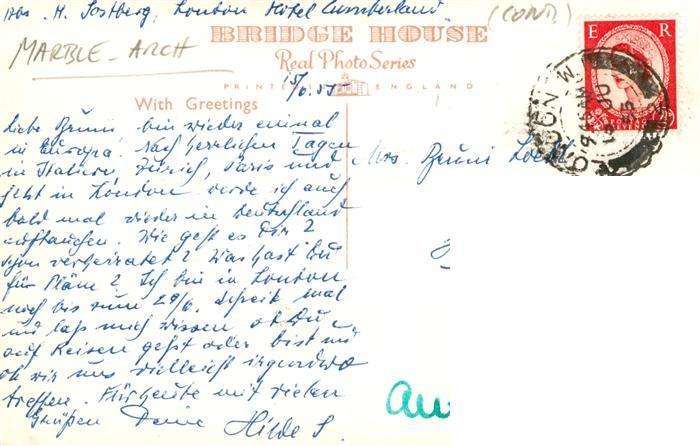 H. Sostberg, London Hotel Cumberland
(CONT)
MARBLE-ARCH
BRIDGE HOUSE
Real Photo Series
PRINTED ENGLAND
15/6.55
With Greetings
E R
LONDON W
Liebe Bruni, bin wieder einmal
in Europa. Nach herrlichen Tagen
in Italien, Zürich, Paris und
jetzt in London werde ich auch
bald mal wieder in Deutschland
auftauchen. Wie geht es Dir?
Schon verheiratet? Was hast Du
für Pläne? Ich bin in London
noch bis zum 29/6. Schreib mal
und laß mich wissen ob Du
auf Reisen gehst oder bist und
ob wir uns vielleicht irgendwo
treffen. Für heute mit vielen
Grüßen Deine Hilde S.
Mrs. Bruni